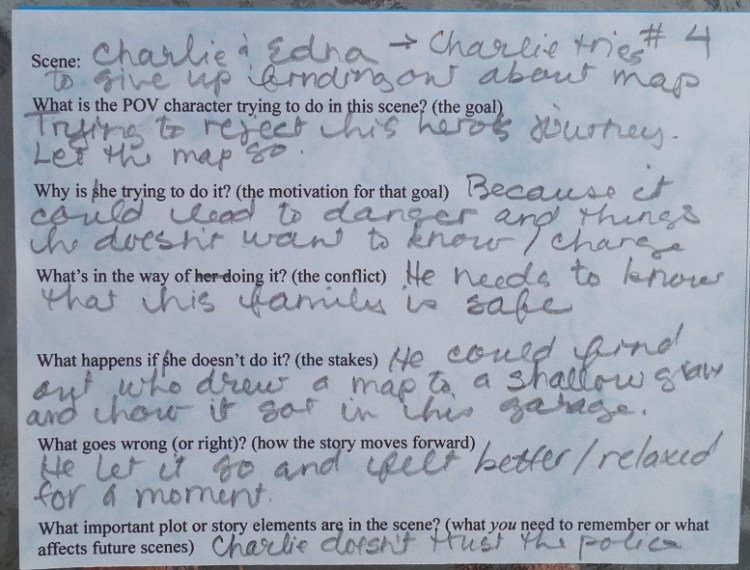 Scene: Charlie & Edna → Charlie tries # 4
to give up finding out about map
What is the POV character trying to do in this scene? (the goal)
Trying to reject his hero's journey.
Let the map go.
Why is she trying to do it? (the motivation for that goal) Because it
could lead to danger and things
he doesn't want to know / change
What's in the way of her doing it? (the conflict) He needs to know
that his family is safe
What happens if she doesn't do it? (the stakes) He could find
out who drew a map to a shallow grave
and how it got in his garage.
What goes wrong (or right)? (how the story moves forward)
He let it go and felt better / relaxed
for a moment.
What important plot or story elements are in the scene? (what you need to remember or what
affects future scenes) Charlie doesn't trust the police